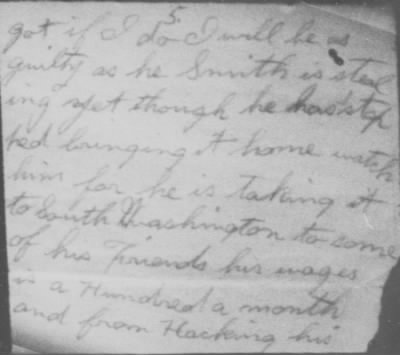 5.
got if I do I will be as
guilty as he Smith is steal
ing yet though he has step
ped bringing it home watch
him for he is taking it
to South Washington to some
of his Friends his wages
is a Hundred a month
and from Hacking his